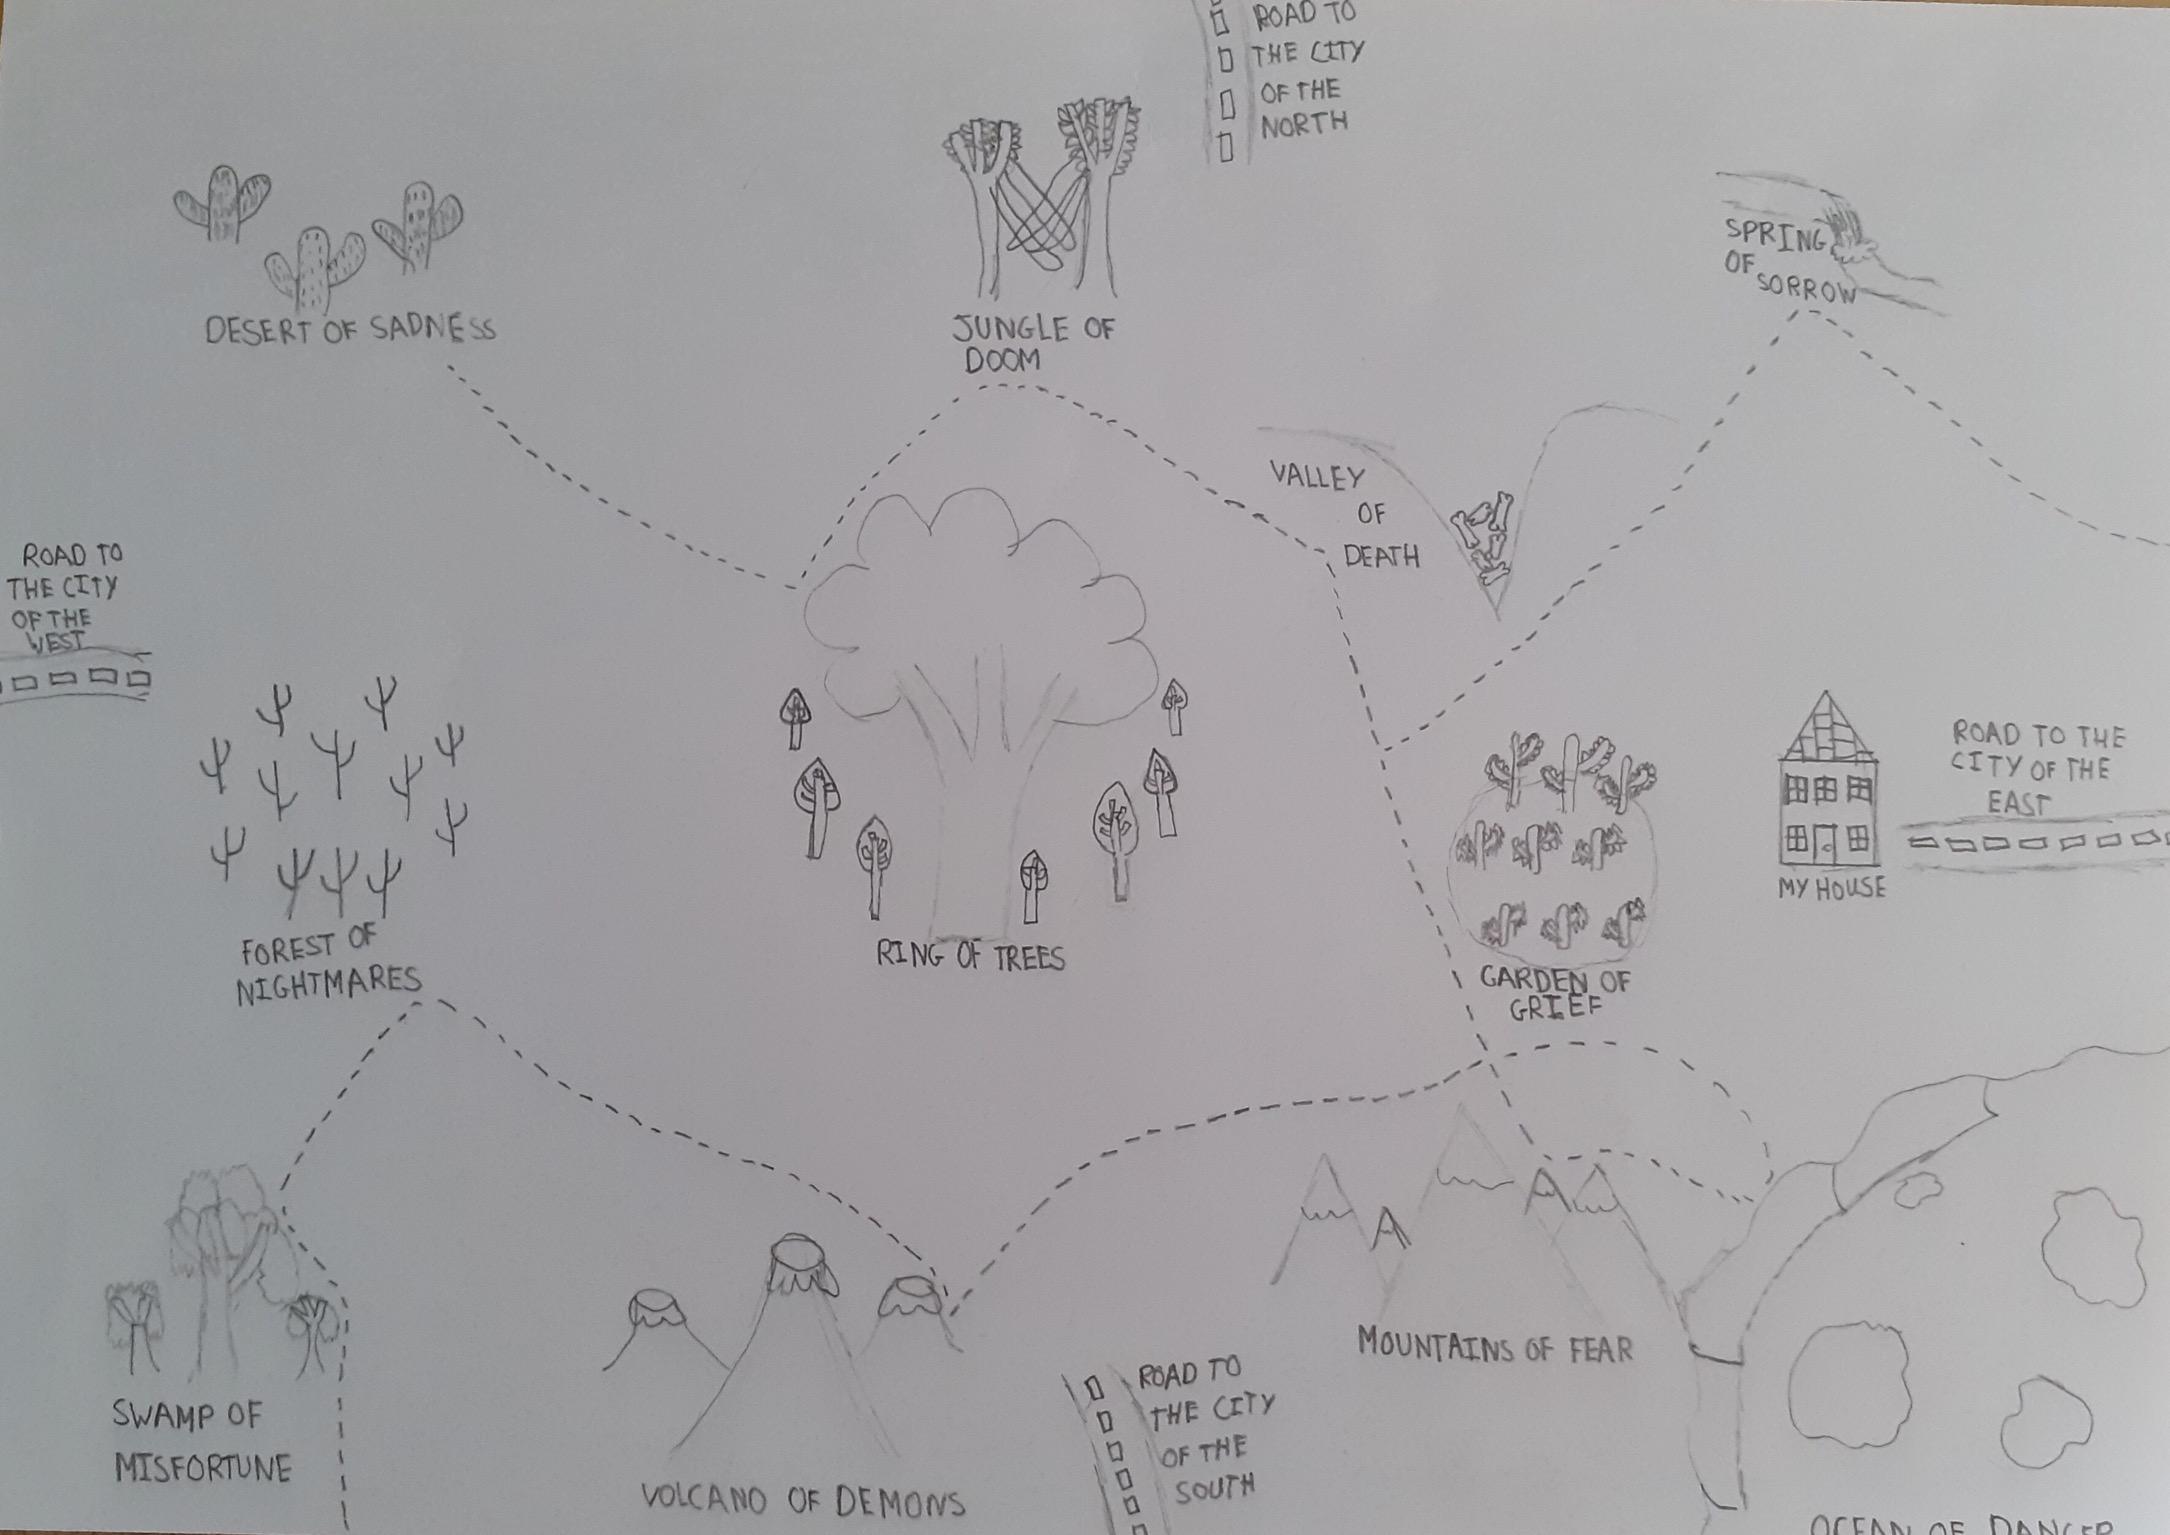 ROAD TO
THE CITY
OF THE
NORTH
SPRING
OF
SORROW
DESERT OF SADNESS
JUNGLE OF
DOOM
VALLEY
OF
DEATH
ROAD TO
THE CITY
OF THE
WEST
ROAD TO THE
CITY OF THE
EAST
MY HOUSE
FOREST OF
NIGHTMARES
RING OF TREES
GARDEN OF
GRIEF
MOUNTAINS OF FEAR
ROAD TO
THE CITY
OF THE
SOUTH
SWAMP OF
MISFORTUNE
VOLCANO OF DEMONS
OCEAN OF DANGER